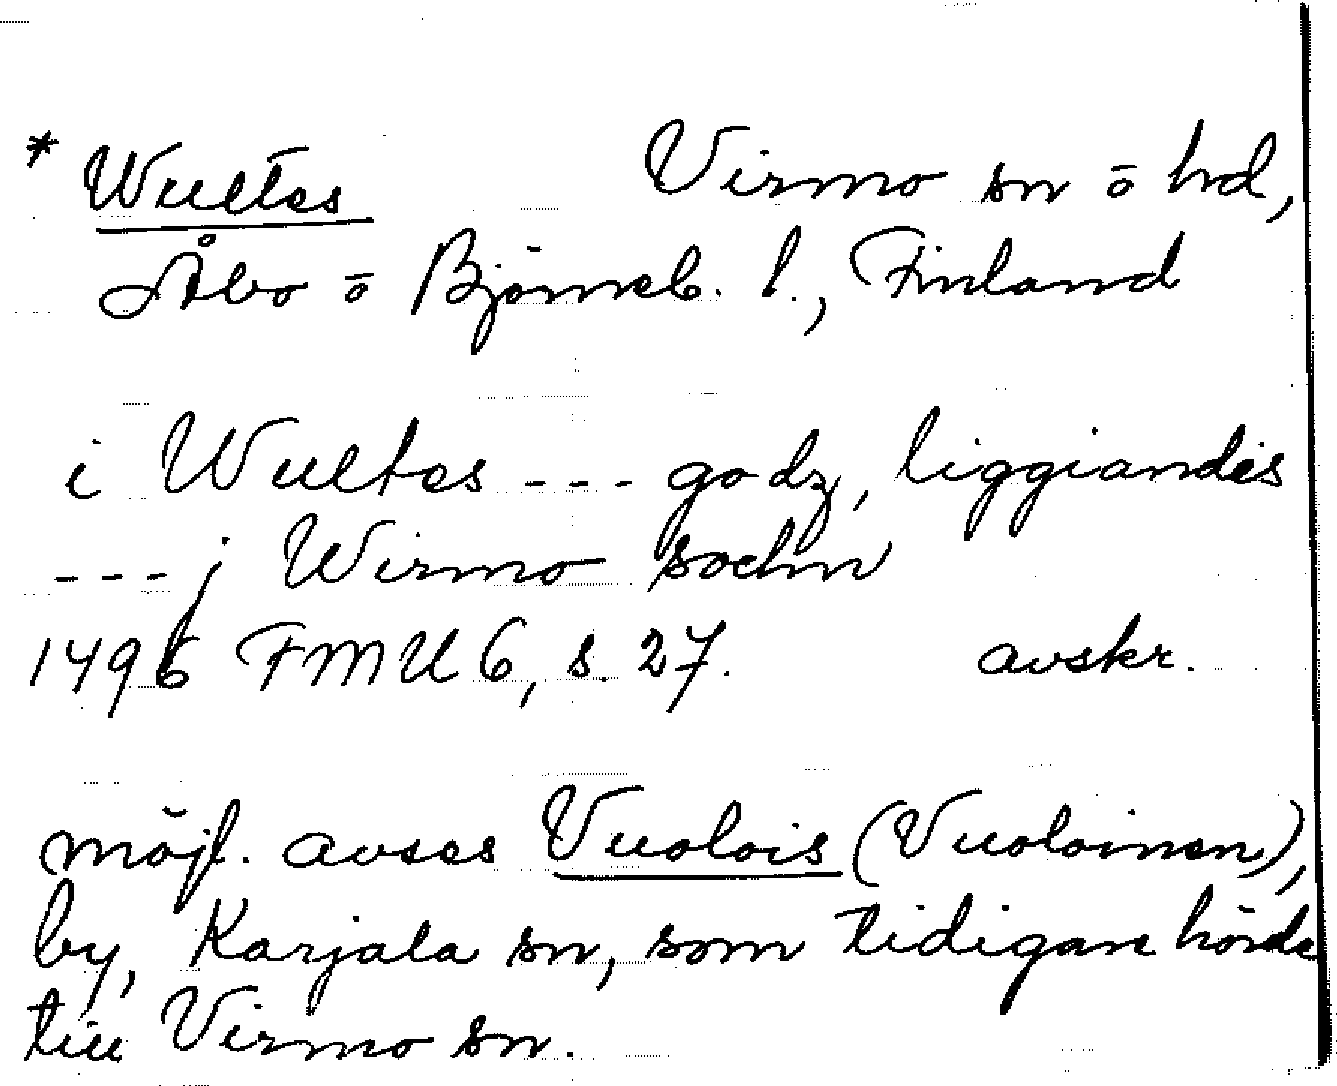 * Wultes Virmo sn o hd,
Åbo o Björneb. l., Finland
i Wultes --- godz, liggiandes
--- j Wirmo sochn
1496 FMU 6, s. 27. avskr.
möjl. avses Vuolois (Vuoloinen),
by, Karjala sn, som tidigare hörde
till Virmo sn.